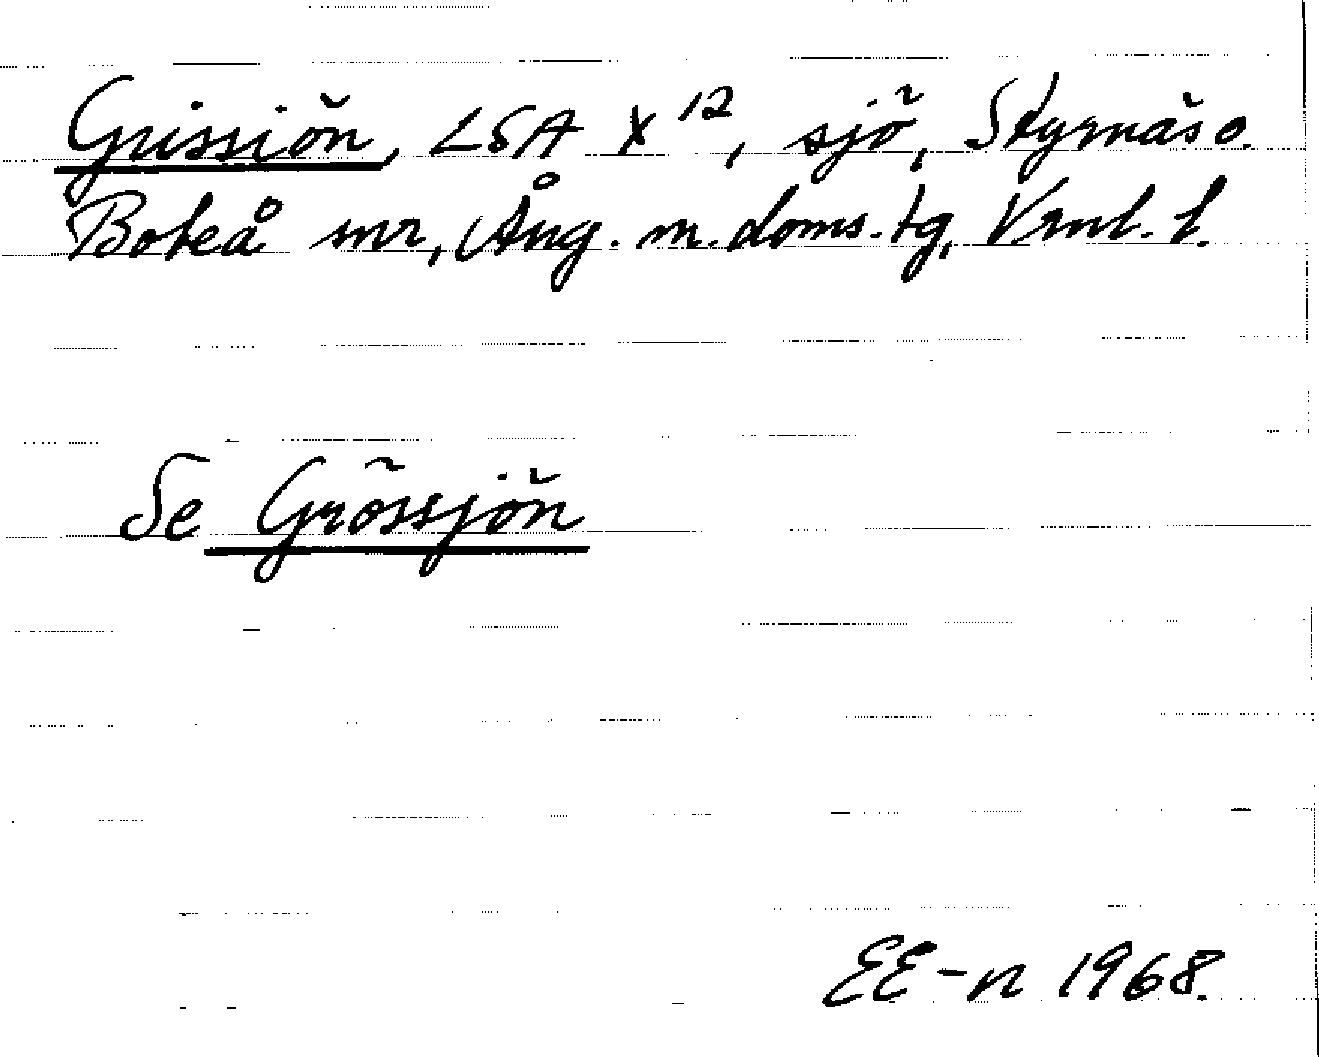 Grissiön, LSA X 12, sjö, Styrnäs o.
Boteå snr, Ång. m. doms. tg, Vrnl. l.
Se Grössjön
EE-n 1968.